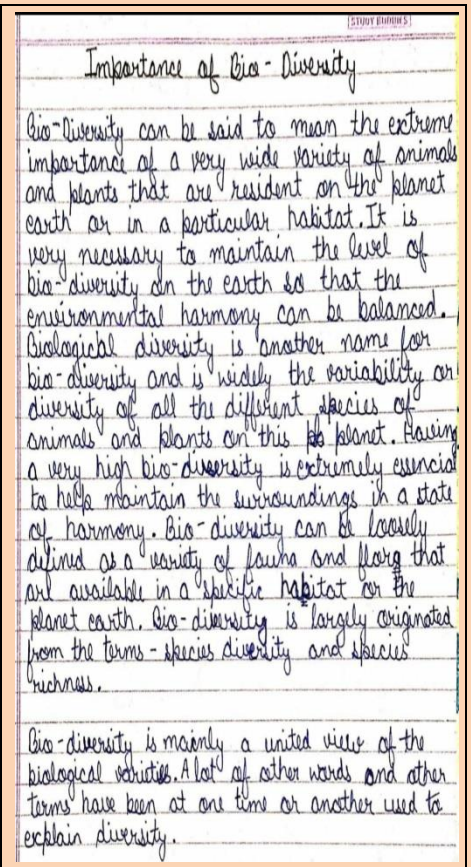 STUDY BUDDIES
Importance of Bio - Diversity
Bio-Diversity can be said to mean the extreme
importance of a very wide variety of animals
and plants that are resident on the planet
earth or in a particular habitat. It is
very necessary to maintain the level of
bio-diversity on the earth so that the
environmental harmony can be balanced.
Biological diversity is another name for
bio-diversity and is widely the variability or
diversity of all the different species of
animals and plants on this planet. Having
a very high bio-diversity is extremely essencial
to help maintain the surroundings in a state
of harmony. Bio-diversity can be loosely
defined as a variety of fauna and flora that
are available in a specific habitat or the
planet earth. Bio-diversity is largely originated
from the terms - species diversity and species
richness.
Bio-diversity is mainly a united view of the
biological varieties. A lot of other words and other
terms have been at one time or another used to
explain diversity.